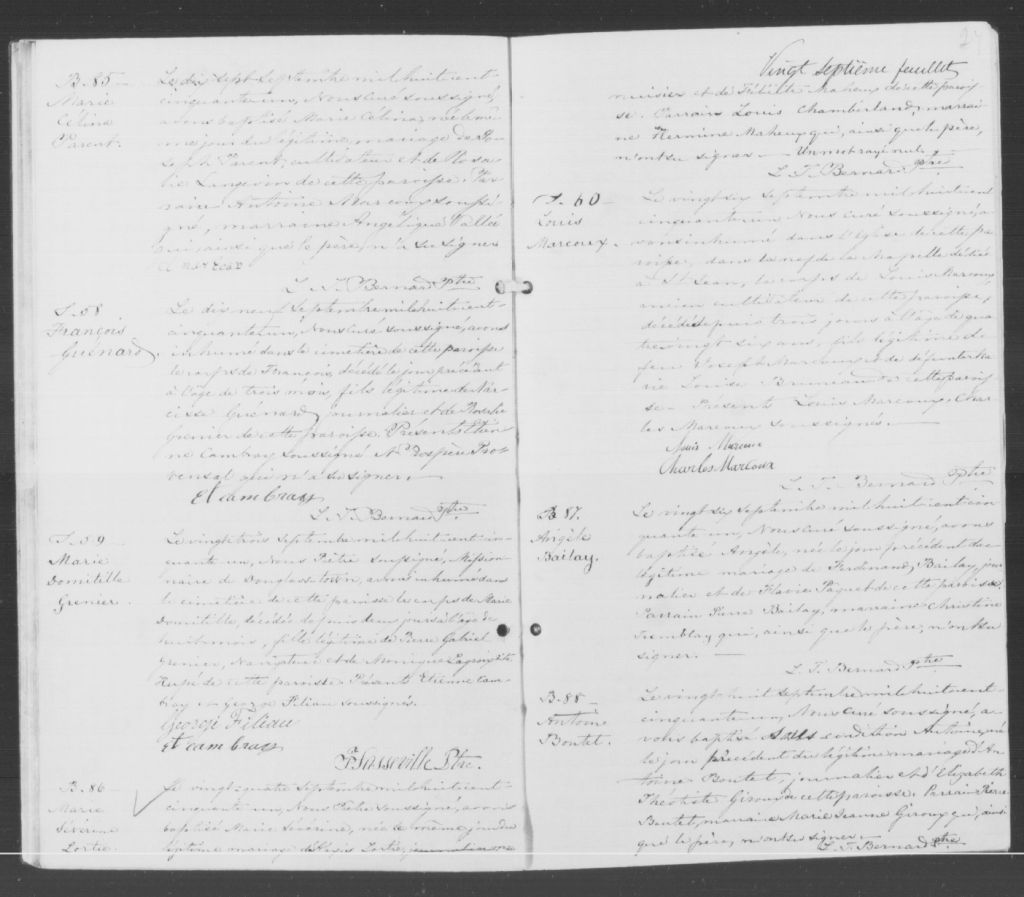 B. 85 —
Marie
Celina
Parent.
Le dix sept Septembre mil huit cent
cinquante un, Nous Curé soussigné,
avons baptisé Marie Celina, née le
même jour du légitime mariage de Jo-
seph Parent, cultivateur et de Rosa-
lie Langevin de cette paroisse. Par-
rain Antoine Marcoux soussi-
gné, marraine Angélique Vallée
qui, ainsi que le père, n'a su signer
L. T. Bernard Ptre
S. 58
François
Guénard.
Le dix neuf Septembre mil huit cent-
cinquante un, Nous Curé soussigné, avons
inhumé dans le cimetière de cette paroisse
le corps de François, décédé le jour précédent
à l'âge de trois mois, fils légitime de Nar-
cisse Guénard journalier et de Rosalie
Grenier de cette paroisse. Présents Etien-
ne Cambray soussigné et Prospère Pro-
vensal qui n'a su signer.
Et cambray
L. T. Bernard Ptre.
S. 59
Marie
Domitille
Grenier.
Le vingt trois septembre mil huit cent cin-
quante un, Nous Prêtre soussigné, Mission-
naire de Douglass-town, avons inhumé dans
le cimetière de cette paroisse le corps de Marie
Domitille, décédée depuis deux jours à l'âge de
huit mois, fille légitime de Pierre Gabriel
Grenier, Navigateur et de Monique
de cette paroisse. Présents Etienne Cam-
bray et George Filiau soussignés.
George Filiau
Et cambray
F Sasseville Ptre.
B. 86
Marie
Sévérine
Lortie.
Le vingt-quatre septembre mil huit cent-
cinquante un, Nous Prêtre soussigné, avons
baptisé Marie Sévérine, née le même jour du
légitime mariage d'Alexis Lortie
27
Vingt septième feuillet
nuisier et de Félicité Maheux de cette parois-
se. Parrain Louis Chamberland, marrai-
ne Hermine Maheux qui, ainsi que le père,
n'ont su signer — Un mot rayé nul.
L. T. Bernard Ptre
S. 60 —
Louis
Marcoux.
Le vingt six septembre mil huit cent
cinquante un Nous curé soussigné, a-
vons inhumé dans l'Eglise de cette pa-
roisse, dans la nef de la chapelle dédiée
à St. Jean, le corps de Louis Marcoux
ancien cultivateur de cette paroisse,
décédé depuis trois jours à l'âge de qua-
tre vingt six ans, fils légitime de
feu Joseph Marcoux et de défunte Ma-
rie Louise Bruneau de cette parois-
se — Présents Louis Marcoux, Char-
les Marcoux soussignés. —
Louis Marcoux
Charles Marcoux
L. T. Bernard Ptre
B. 87.
Angèle
Bailay.
Le vingt six septembre mil huit cent cin-
quante un, Nous curé soussigné, avons
baptisé Angèle, née le jour précédent du
légitime mariage de Ferdinand Bailay, jour-
nalier et de Flavie Paquet de cette paroisse.
Parrain Pierre Bailay, marraine Christine
Tremblay qui, ainsi que le père, n'ont su
signer. —
L. T. Bernard Ptre
B. 88 —
Antoine
Boutet.
Le vingt huit septembre mil huit cent-
cinquante un, Nous curé soussigné, a-
vons baptisé sous condition Antoine, né
le jour précédent du légitime mariage d'An-
toine Boutet, journalier et d'Elizabeth
Théotiste Giroux de cette paroisse. Parrain Pierre
Boutet, marraine Marie Jeanne Giroux qui, ainsi
que le père, n'ont su signer. —
L. T. Bernard Ptre.